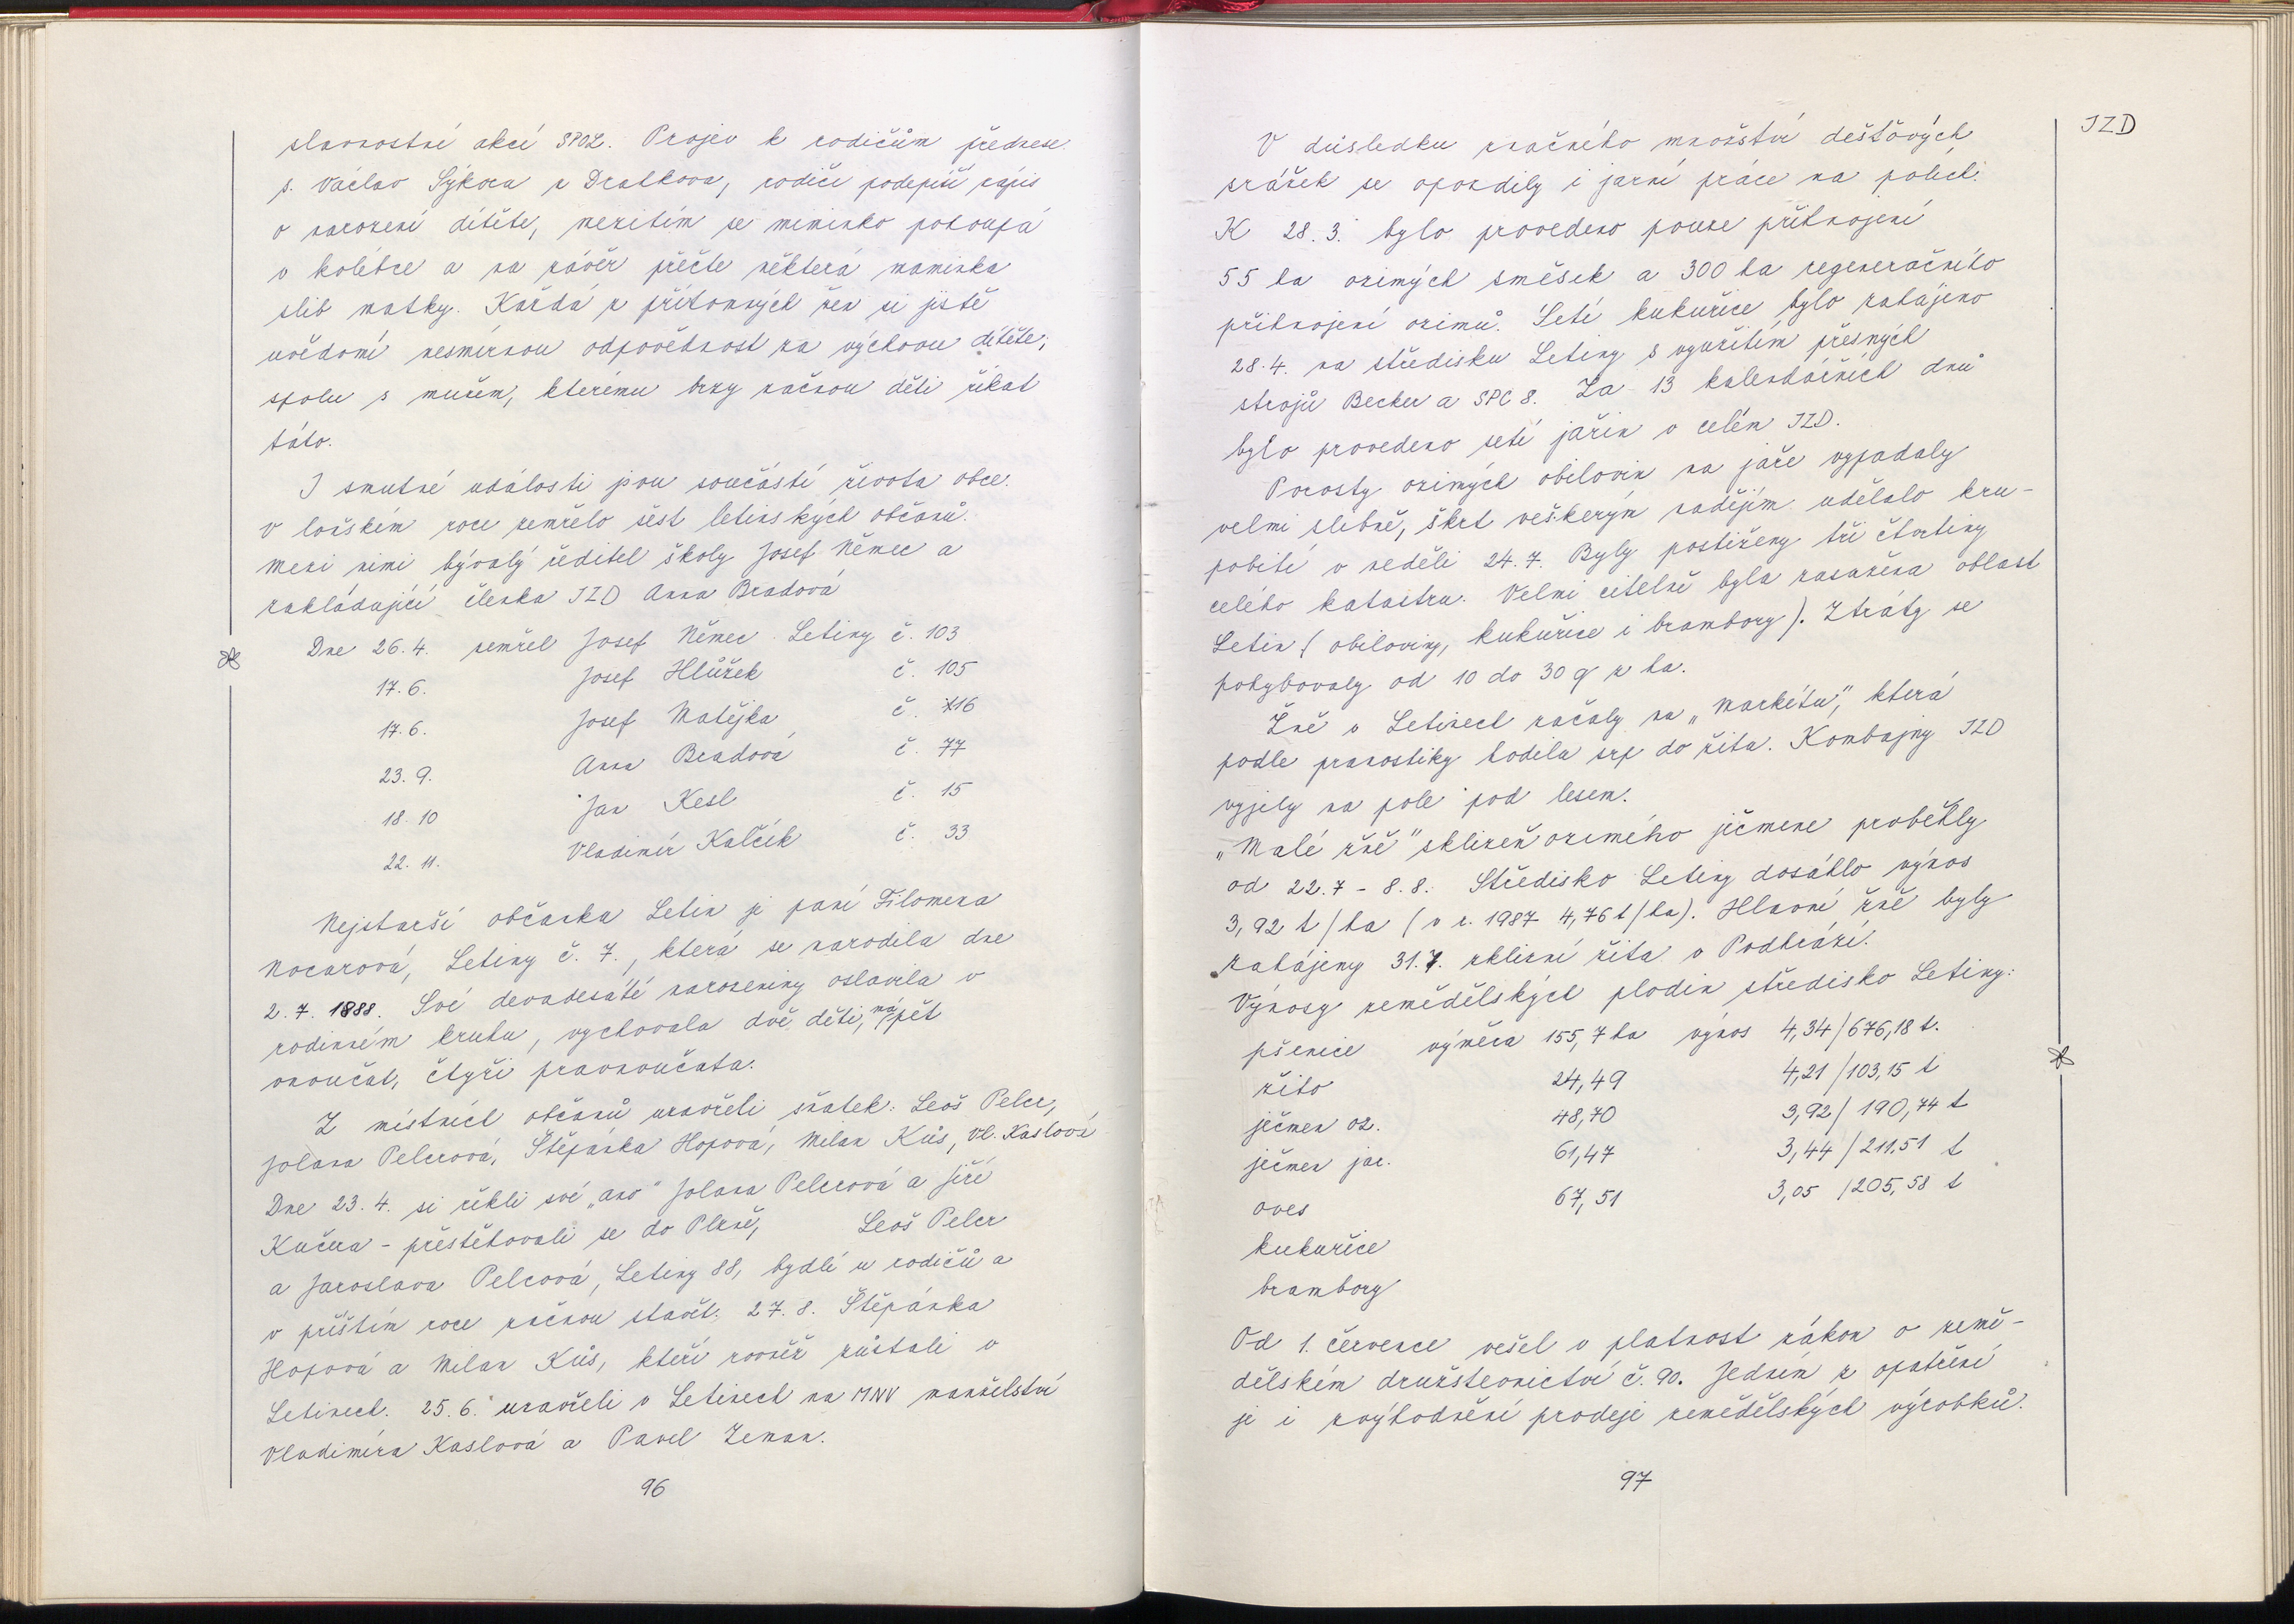 slavnostní akcí SPOZ. Projev k rodičům přednese
s. Václav Sýkora z Drahkova, rodiče podepíší zápis
o narození dítěte, mezitím se miminko pohoupá
v kolébce a na závěr přečte některá maminka
slib matky. Každá z přítomných žen si jistě
uvědomí nesmírnou odpovědnost za výchovu dítěte,
spolu s mužem, kterému brzy začnou děti říkat
táto.
I smutné události jsou součástí života obce.
V loňském roce zemřelo šest letinských občanů.
Mezi nimi bývalý ředitel školy Josef Němec a
zakládající členka JZD Anna Bradová
Dne 26.4. zemřel Josef Němec Letiny č. 103
17.6. Josef Hlůžek č. 105
17.6. Josef Matějka č. 116
23.9. Anna Bradová č. 77
18.10 Jan Kesl č. 15
22.11. Vladimír Kalčík č. 33
Nejstarší občanka Letin je paní Filomena
Nocarová, Letiny č. 7., která se narodila dne
2.7.1888. Své devadesáté narozeniny oslavila v
rodinném kruhu, vychovala dvě děti, má pět
vnoučat, čtyři pravnoučata.
Z místních občanů uzavřeli sňatek: Leoš Pelcr,
Jolana Pelcrová, Štěpánka Hopová, Milan Kůs, Vl. Kaslová
Dne 23.4. si řekli své „ano" Jolana Pelcrová a Jiří
Kučera – přestěhovali se do Plzně, Leoš Pelcr
a Jaroslava Pelcová, Letiny 88, bydlí u rodičů a
v příštím roce začnou stavět. 27.8. Štěpánka
Hopová a Milan Kůs, kteří rovněž zůstali v
Letinech. 25.6. uzavřeli v Letinech na MNV manželství
Vladimíra Kaslová a Pavel Zeman.
96
JZD
V důsledku značného množství dešťových
srážek se opozdily i jarní práce na polích.
K 28.3. bylo provedeno pouze přihnojení
55 ha ozimých směsek a 300 ha regeneračního
přihnojení ozimů. Setí kukuřice bylo zahájeno
28.4. na středisku Letiny s využitím přesných
strojů Becker a SPC 8. Za 13 kalendářních dnů
bylo provedeno setí jařin v celém JZD.
Porosty ozimých obilovin na jaře vypadaly
velmi slibně, škrt veškerým nadějím udělalo kru-
pobití v neděli 24.7. Byly postiženy tři čtvrtiny
celého katastru. Velmi citelně byla zasažena oblast
Letin (obiloviny, kukuřice i brambory). Ztráty se
pohybovaly od 10 do 30 q z ha.
Žně v Letinech začaly na „Markétu", která
podle pranostiky hodila srp do žita. Kombajny JZD
vyjely na pole pod lesem.
„Malé žně" sklizeň ozimého ječmene proběhly
od 22.7 - 8.8. Středisko Letiny dosáhlo výnos
3,92 t/ha (v r. 1987 4,76 t/ha). Hlavní žně byly
zahájeny 31.7. sklizní žita v Podhrází.
Výnosy zemědělských plodin středisko Letiny:
pšenice výměra 155,7 ha výnos 4,34/676,18 t.
žito 24,49 4,21/103,15 t
ječmen oz. 48,70 3,92/190,74 t
ječmen jar. 61,47 3,44/211,51 t
oves 67,51 3,05/205,58 t
kukuřice
brambory
Od 1. července vešel v platnost zákon o země-
dělském družstevnictví č. 90. Jedním z opatření
je i zvýhodnění prodeje zemědělských výrobků.
97